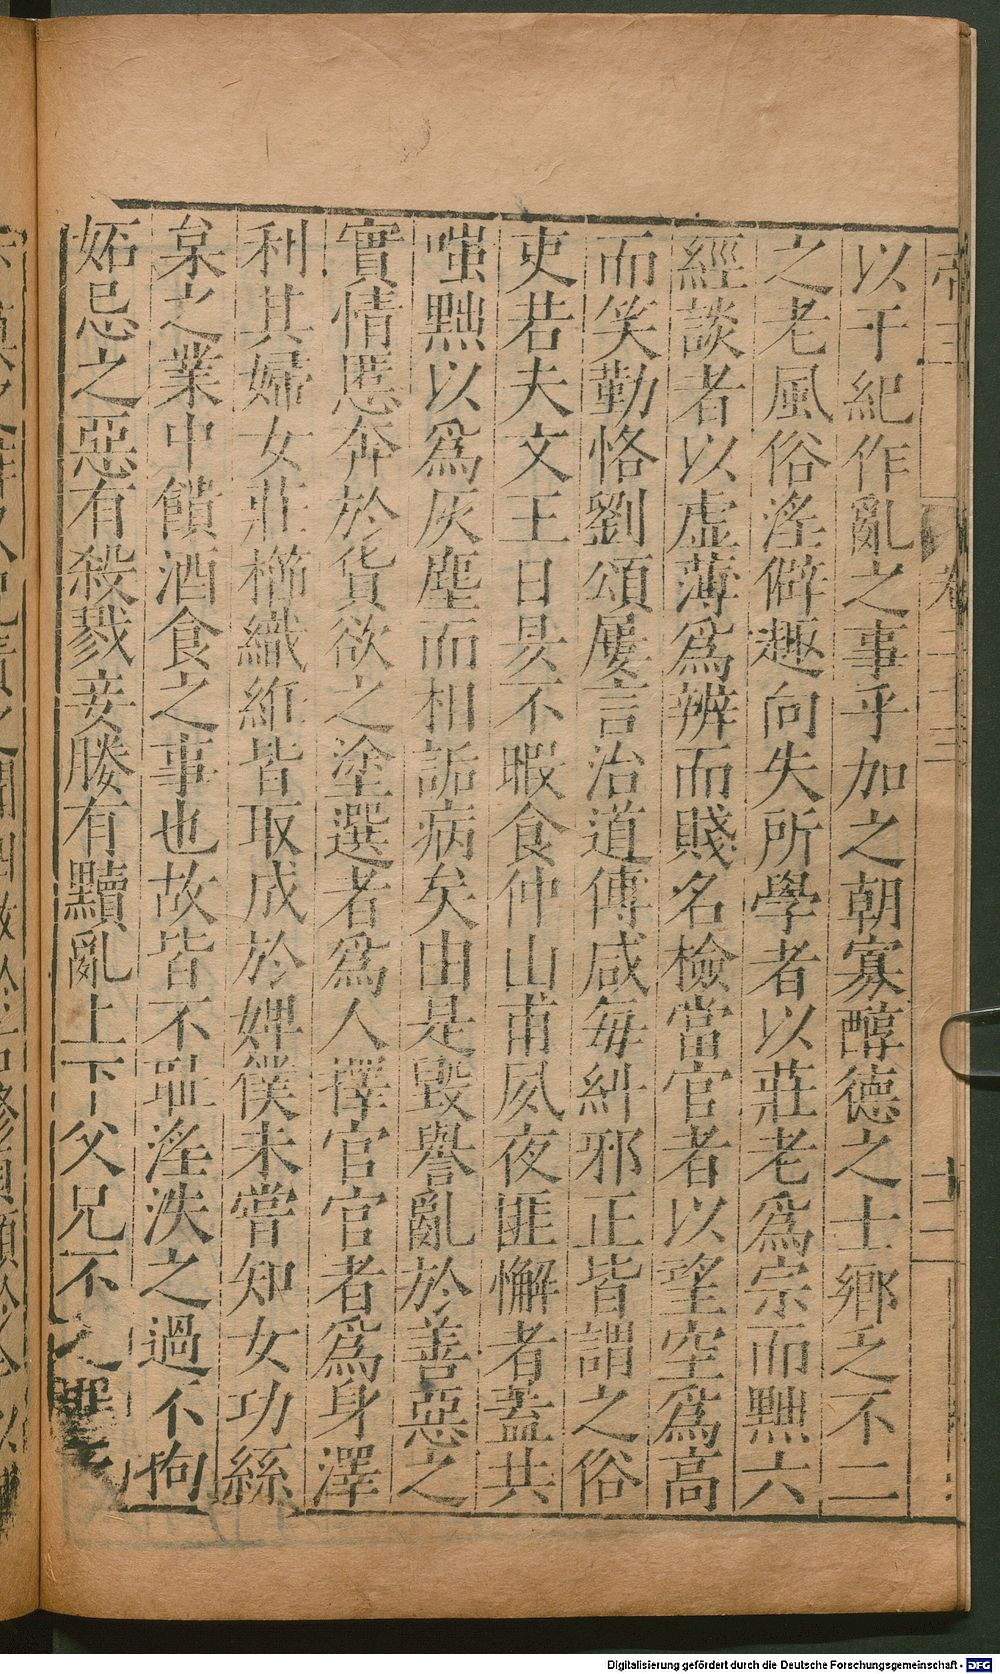 以干紀作亂之事乎加之朝寡醇德之士鄉之不二
之老風俗淫僻趣向失所學者以莊老爲宗而黜六
經談者以虛薄爲辨而賤名檢當官者以望空爲高
而笑勤恪劉頌屢言治道傅咸每糾邪正皆謂之俗
吏若夫文王日昃不暇食仲山甫夙夜匪懈者蓋共
嗤黜以爲灰塵而相詬病矣由是毀譽亂於善惡之
實情慝奔於貨欲之塗選者爲人擇官官者爲身澤
利其婦女莊櫛織絍皆取成於婢僕未嘗知女功絲
枲之業中饋酒食之事也故皆不耻淫泆之過不拘
妬忌之惡有殺戮妾媵有黷亂上下父兄不之罪
卷二十三
十二
Digitalisierung gefördert durch die Deutsche Forschungsgemeinschaft - DFG